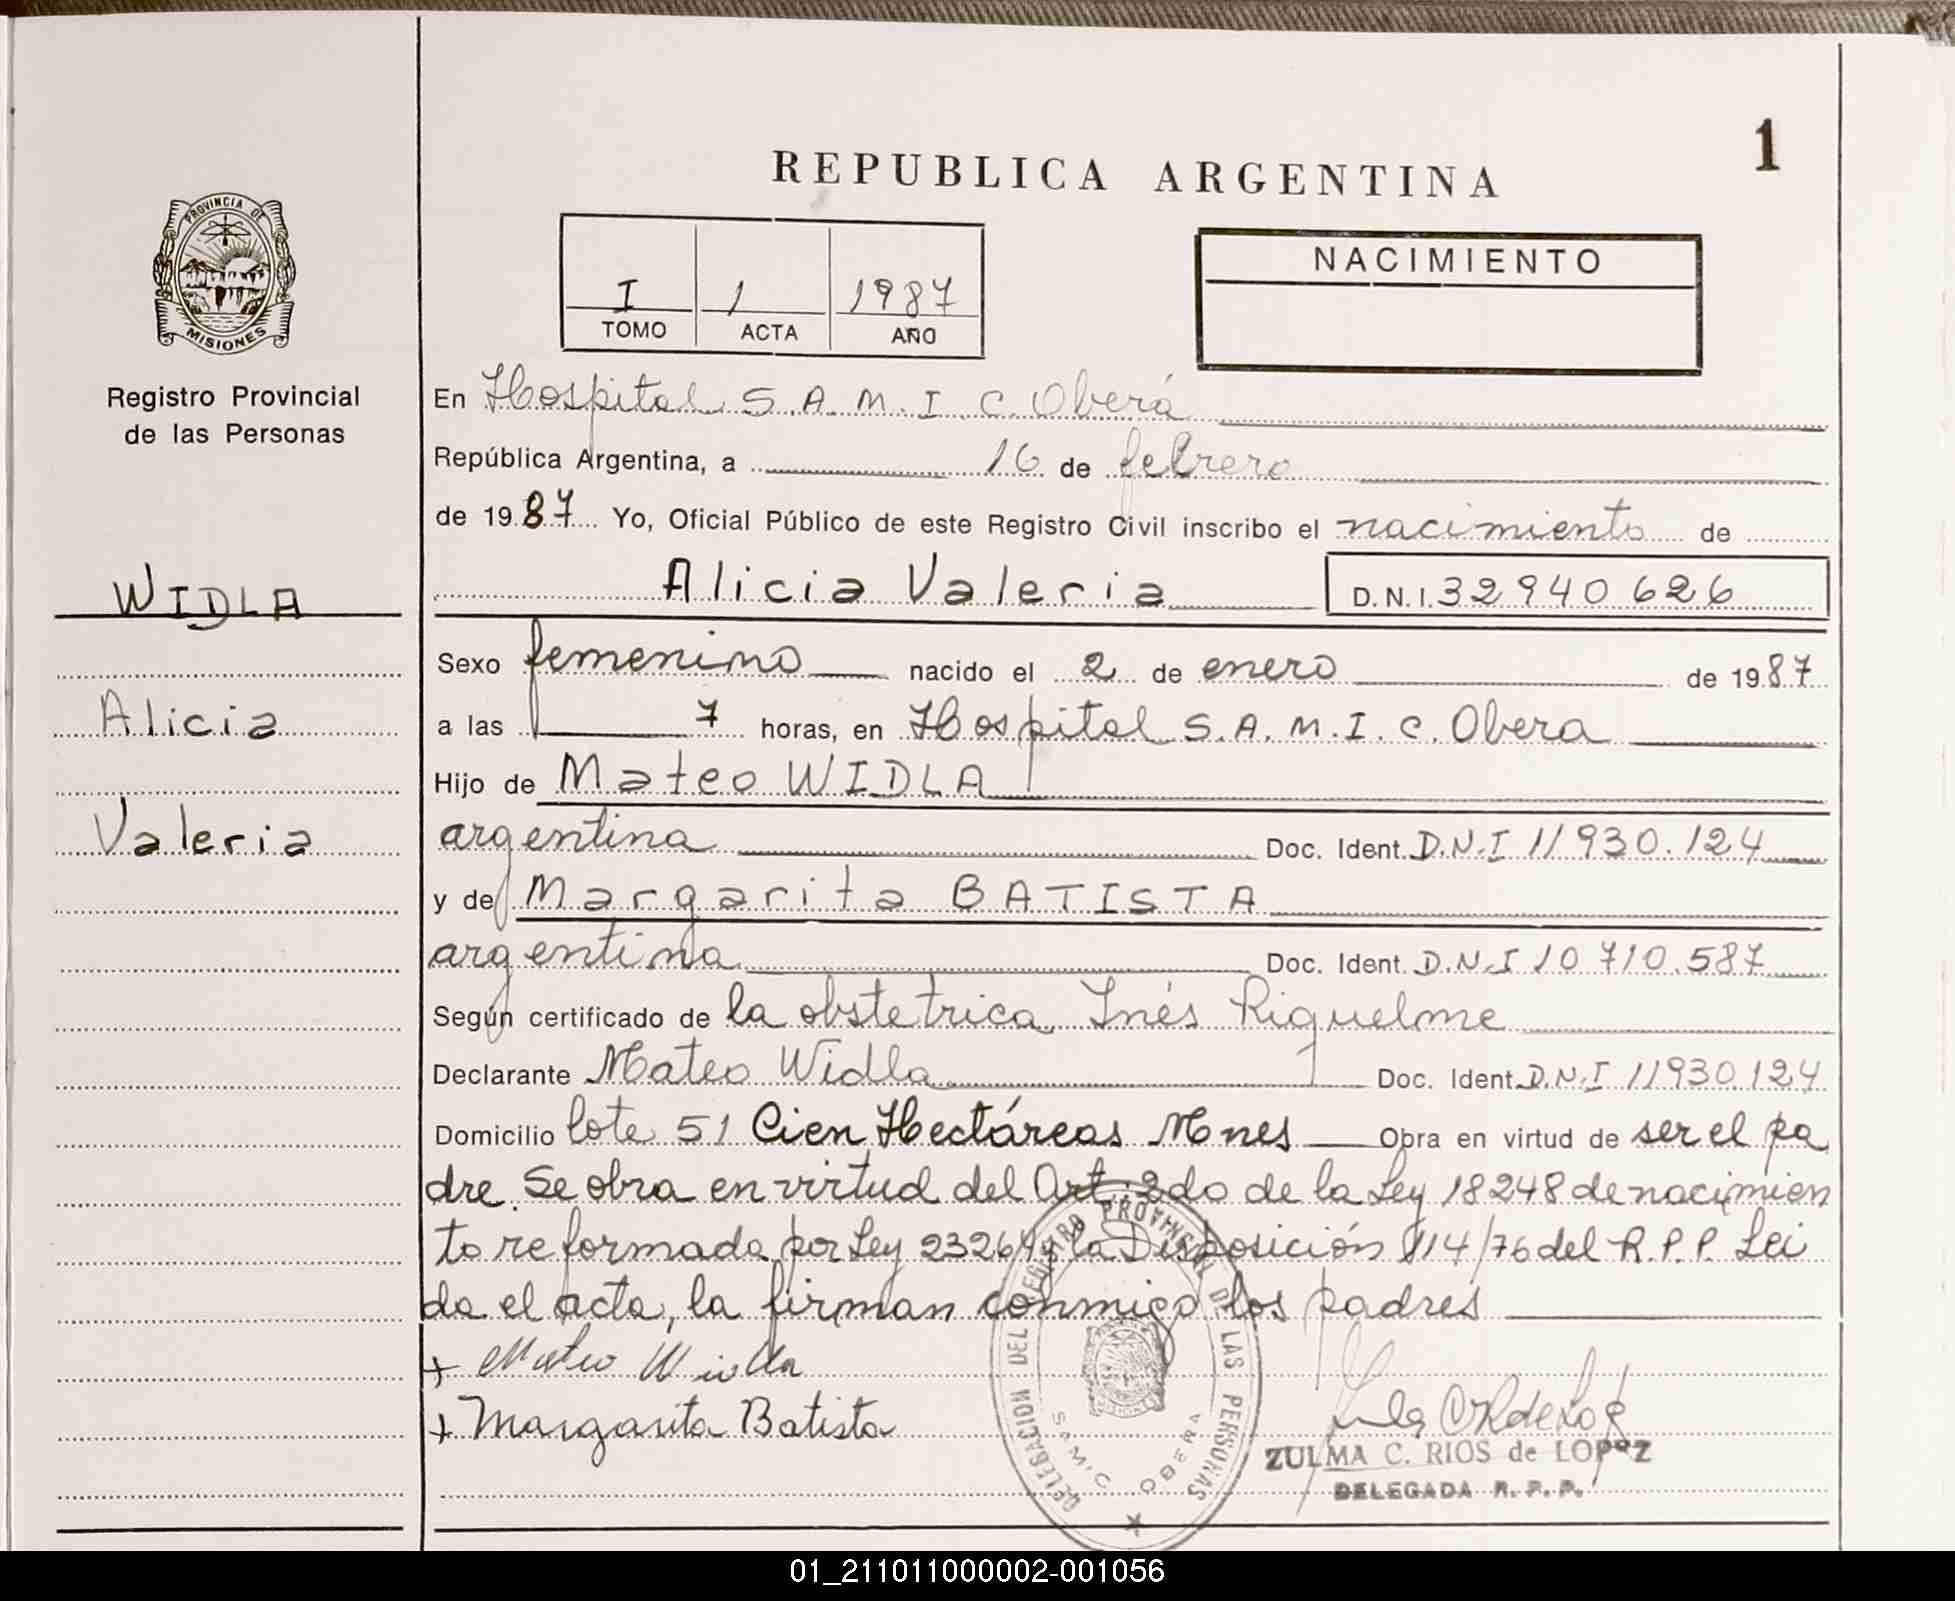 1
REPUBLICA ARGENTINA
PROVINCIA DE
MISIONES
Registro Provincial
de las Personas
I 1 1987
TOMO ACTA AÑO
NACIMIENTO
En Hospital S.A.M.I.C. Oberá
República Argentina, a 16 de febrero
de 1987 Yo, Oficial Público de este Registro Civil inscribo el nacimiento de
Alicia Valeria D.N.I. 32940626
WIDLA
Alicia
Valeria
Sexo femenino nacido el 2 de enero de 1987
a las 7 horas, en Hospital S.A.M.I.C. Obera
Hijo de Mateo WIDLA
argentina Doc. Ident. D.N.I 11930.124
y de Margarita BATISTA
argentina Doc. Ident. D.N.I 10710.587
Según certificado de la obstetrica Inés Riquelme
Declarante Mateo Widla Doc. Ident. D.N.I 11930124
Domicilio lote 51 Cien Hectáreas Mnes Obra en virtud de ser el pa
dre. Se obra en virtud del Art. 2do de la Ley 18248 de nacimien
to reformada por Ley 23264 y la Disposición 114/76 del R.P.P. Lei
da el acta, la firman conmigo los padres
+ Mateo Widla
+ Margarita Batista
DELEGACION DEL REGISTRO PROVINCIAL DE LAS PERSONAS
SAMIC OBERA
ZULMA C. RIOS de LOPEZ
DELEGADA R. P. P.
01_211011000002-001056